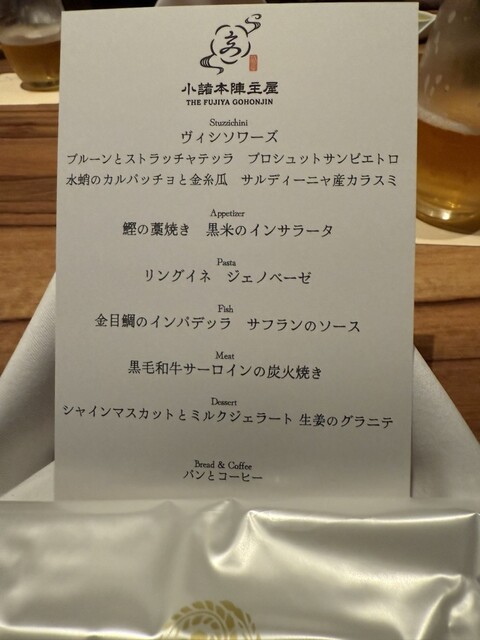 小諸本陣主屋
THE FUJIYA GOHONJIN
Stuzzichini
ヴィシソワーズ
プルーンとストラッチャテッラ　プロシュットサンピエトロ
水蛸のカルパッチョと金糸瓜　サルディーニャ産カラスミ
Appetizer
鰹の藁焼き　黒米のインサラータ
Pasta
リングイネ　ジェノベーゼ
Fish
金目鯛のインパデッラ　サフランのソース
Meat
黒毛和牛サーロインの炭火焼き
Dessert
シャインマスカットとミルクジェラート 生姜のグラニテ
Bread & Coffee
パンとコーヒー